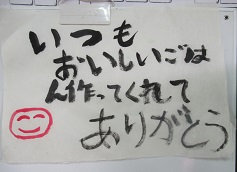 いつも
おいしいごは
ん作ってくれて
ありがとう